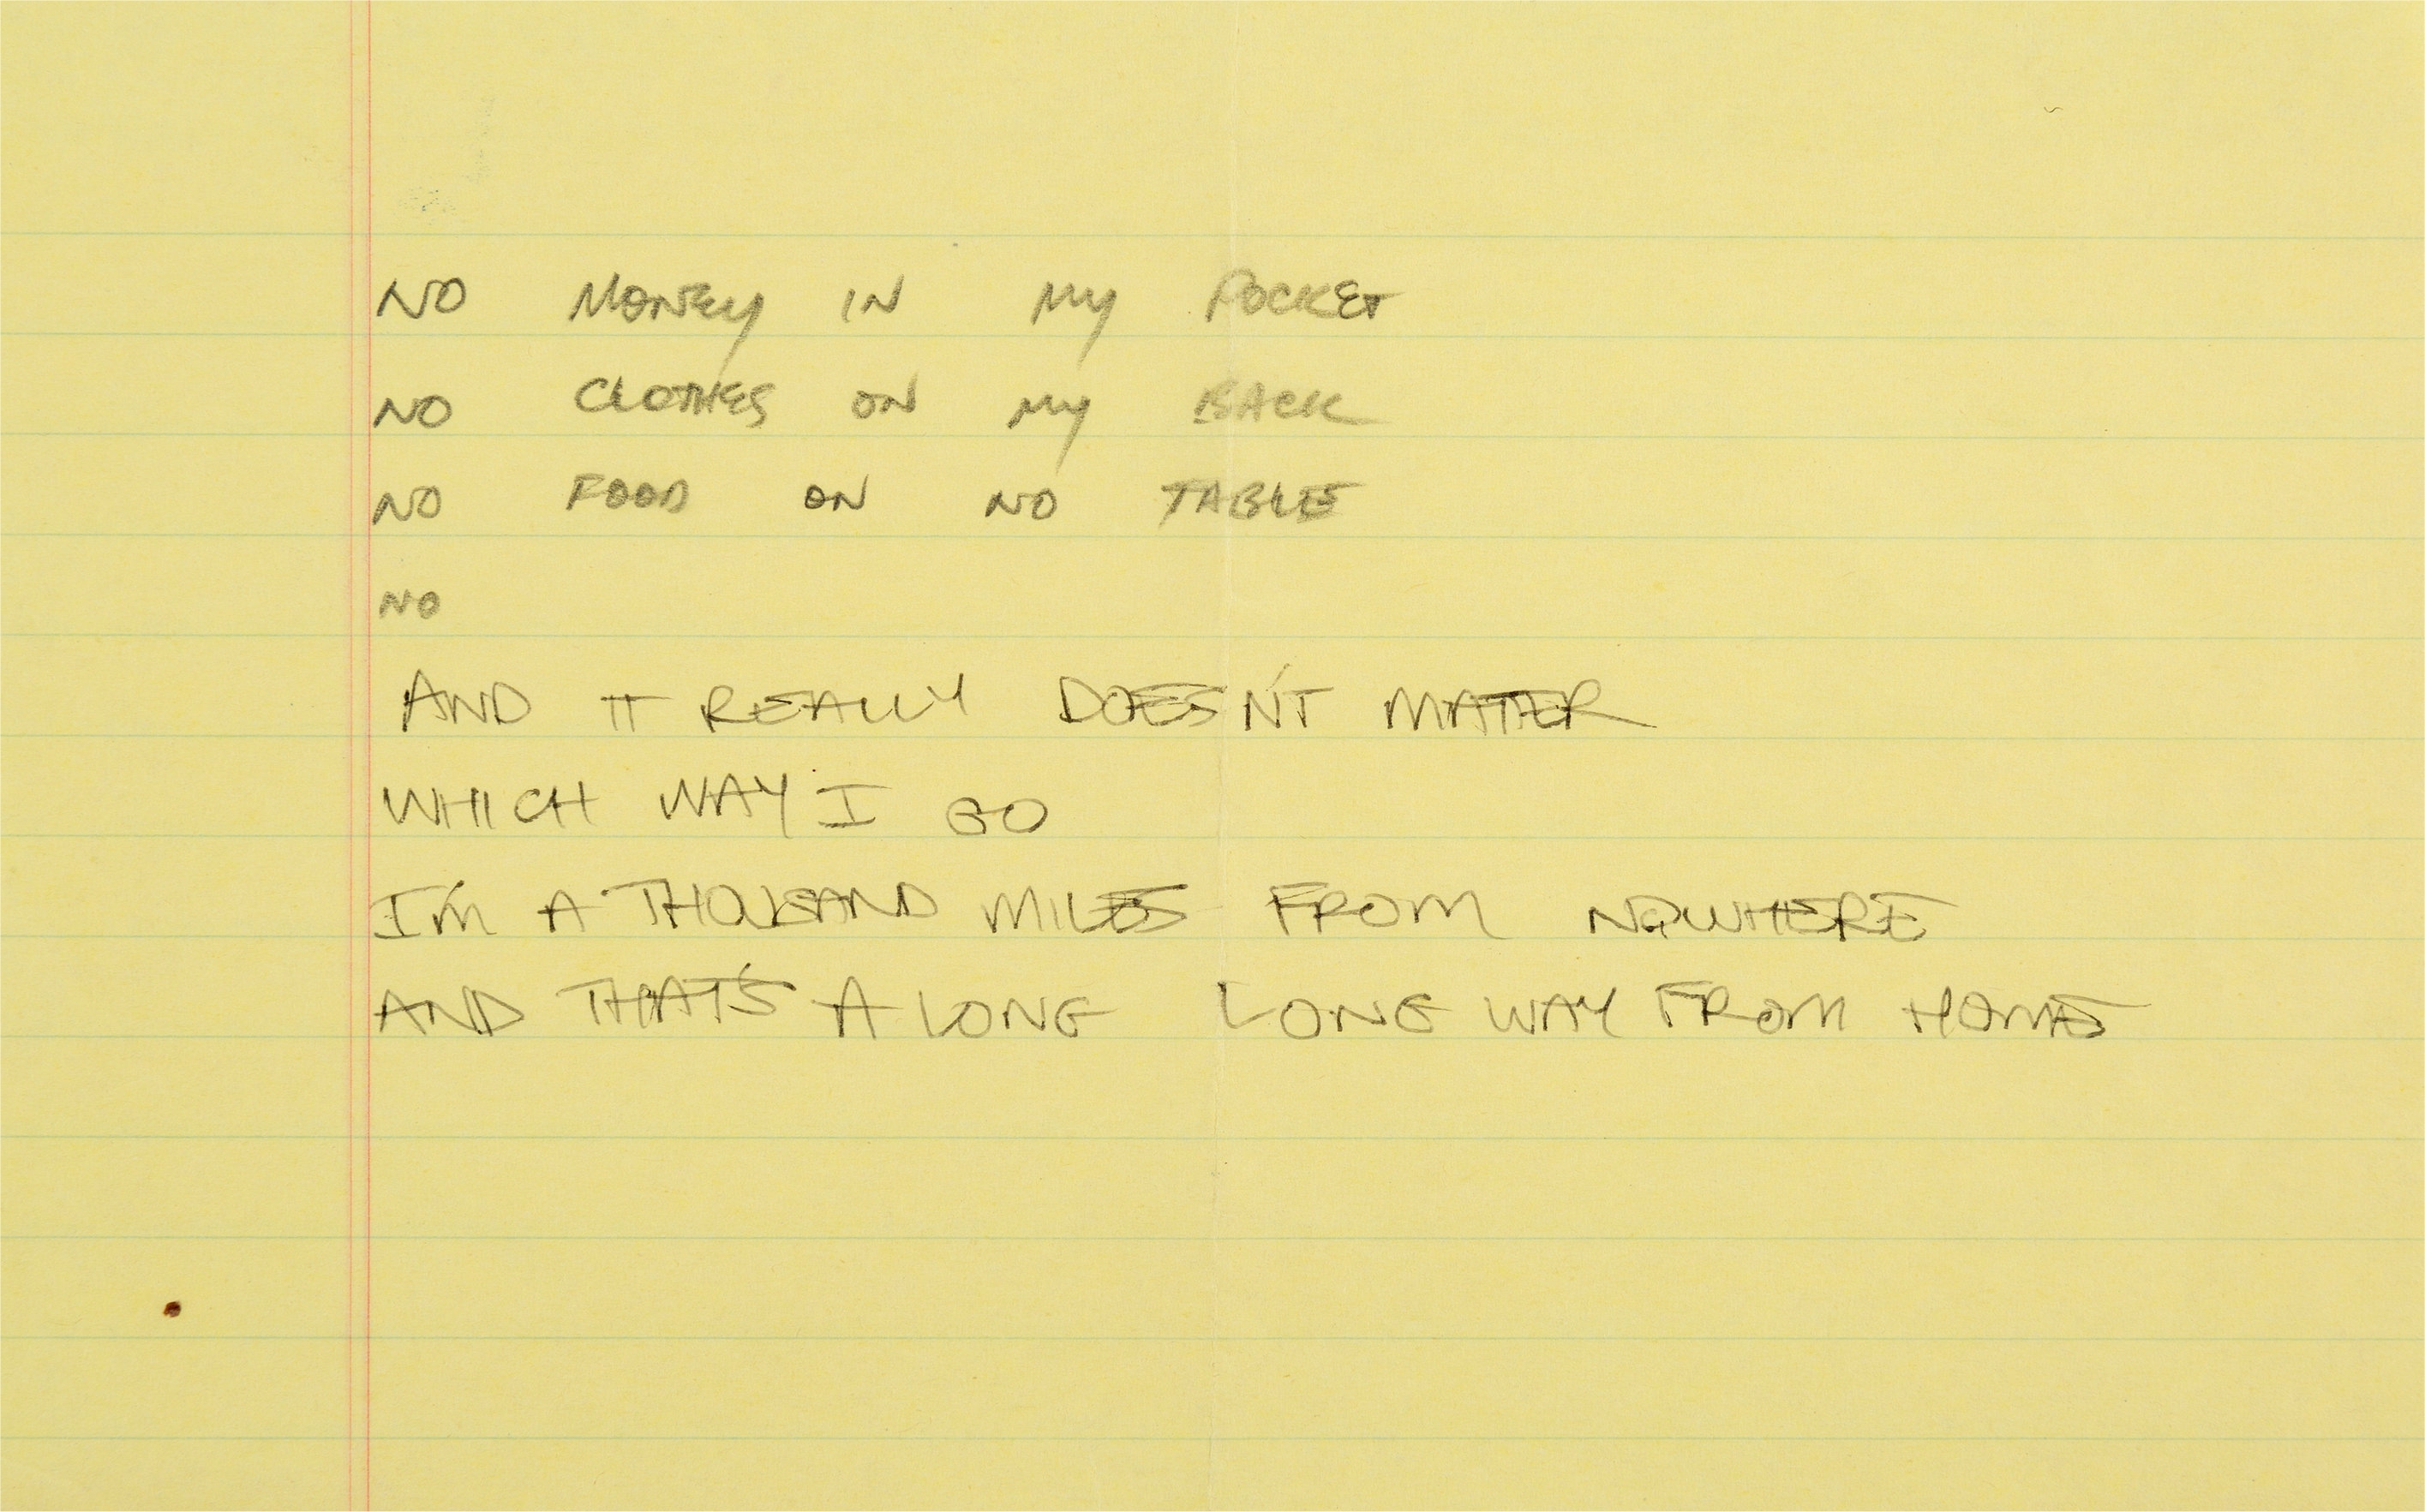 NO MONEY IN MY POCKET
NO CLOTHES ON MY BACK
NO FOOD ON NO TABLE
NO
AND IT REALLY DOESN'T MATTER
WHICH WAY I GO
I'M A THOUSAND MILES FROM NOWHERE
AND THAT'S A LONG LONG WAY FROM HOME